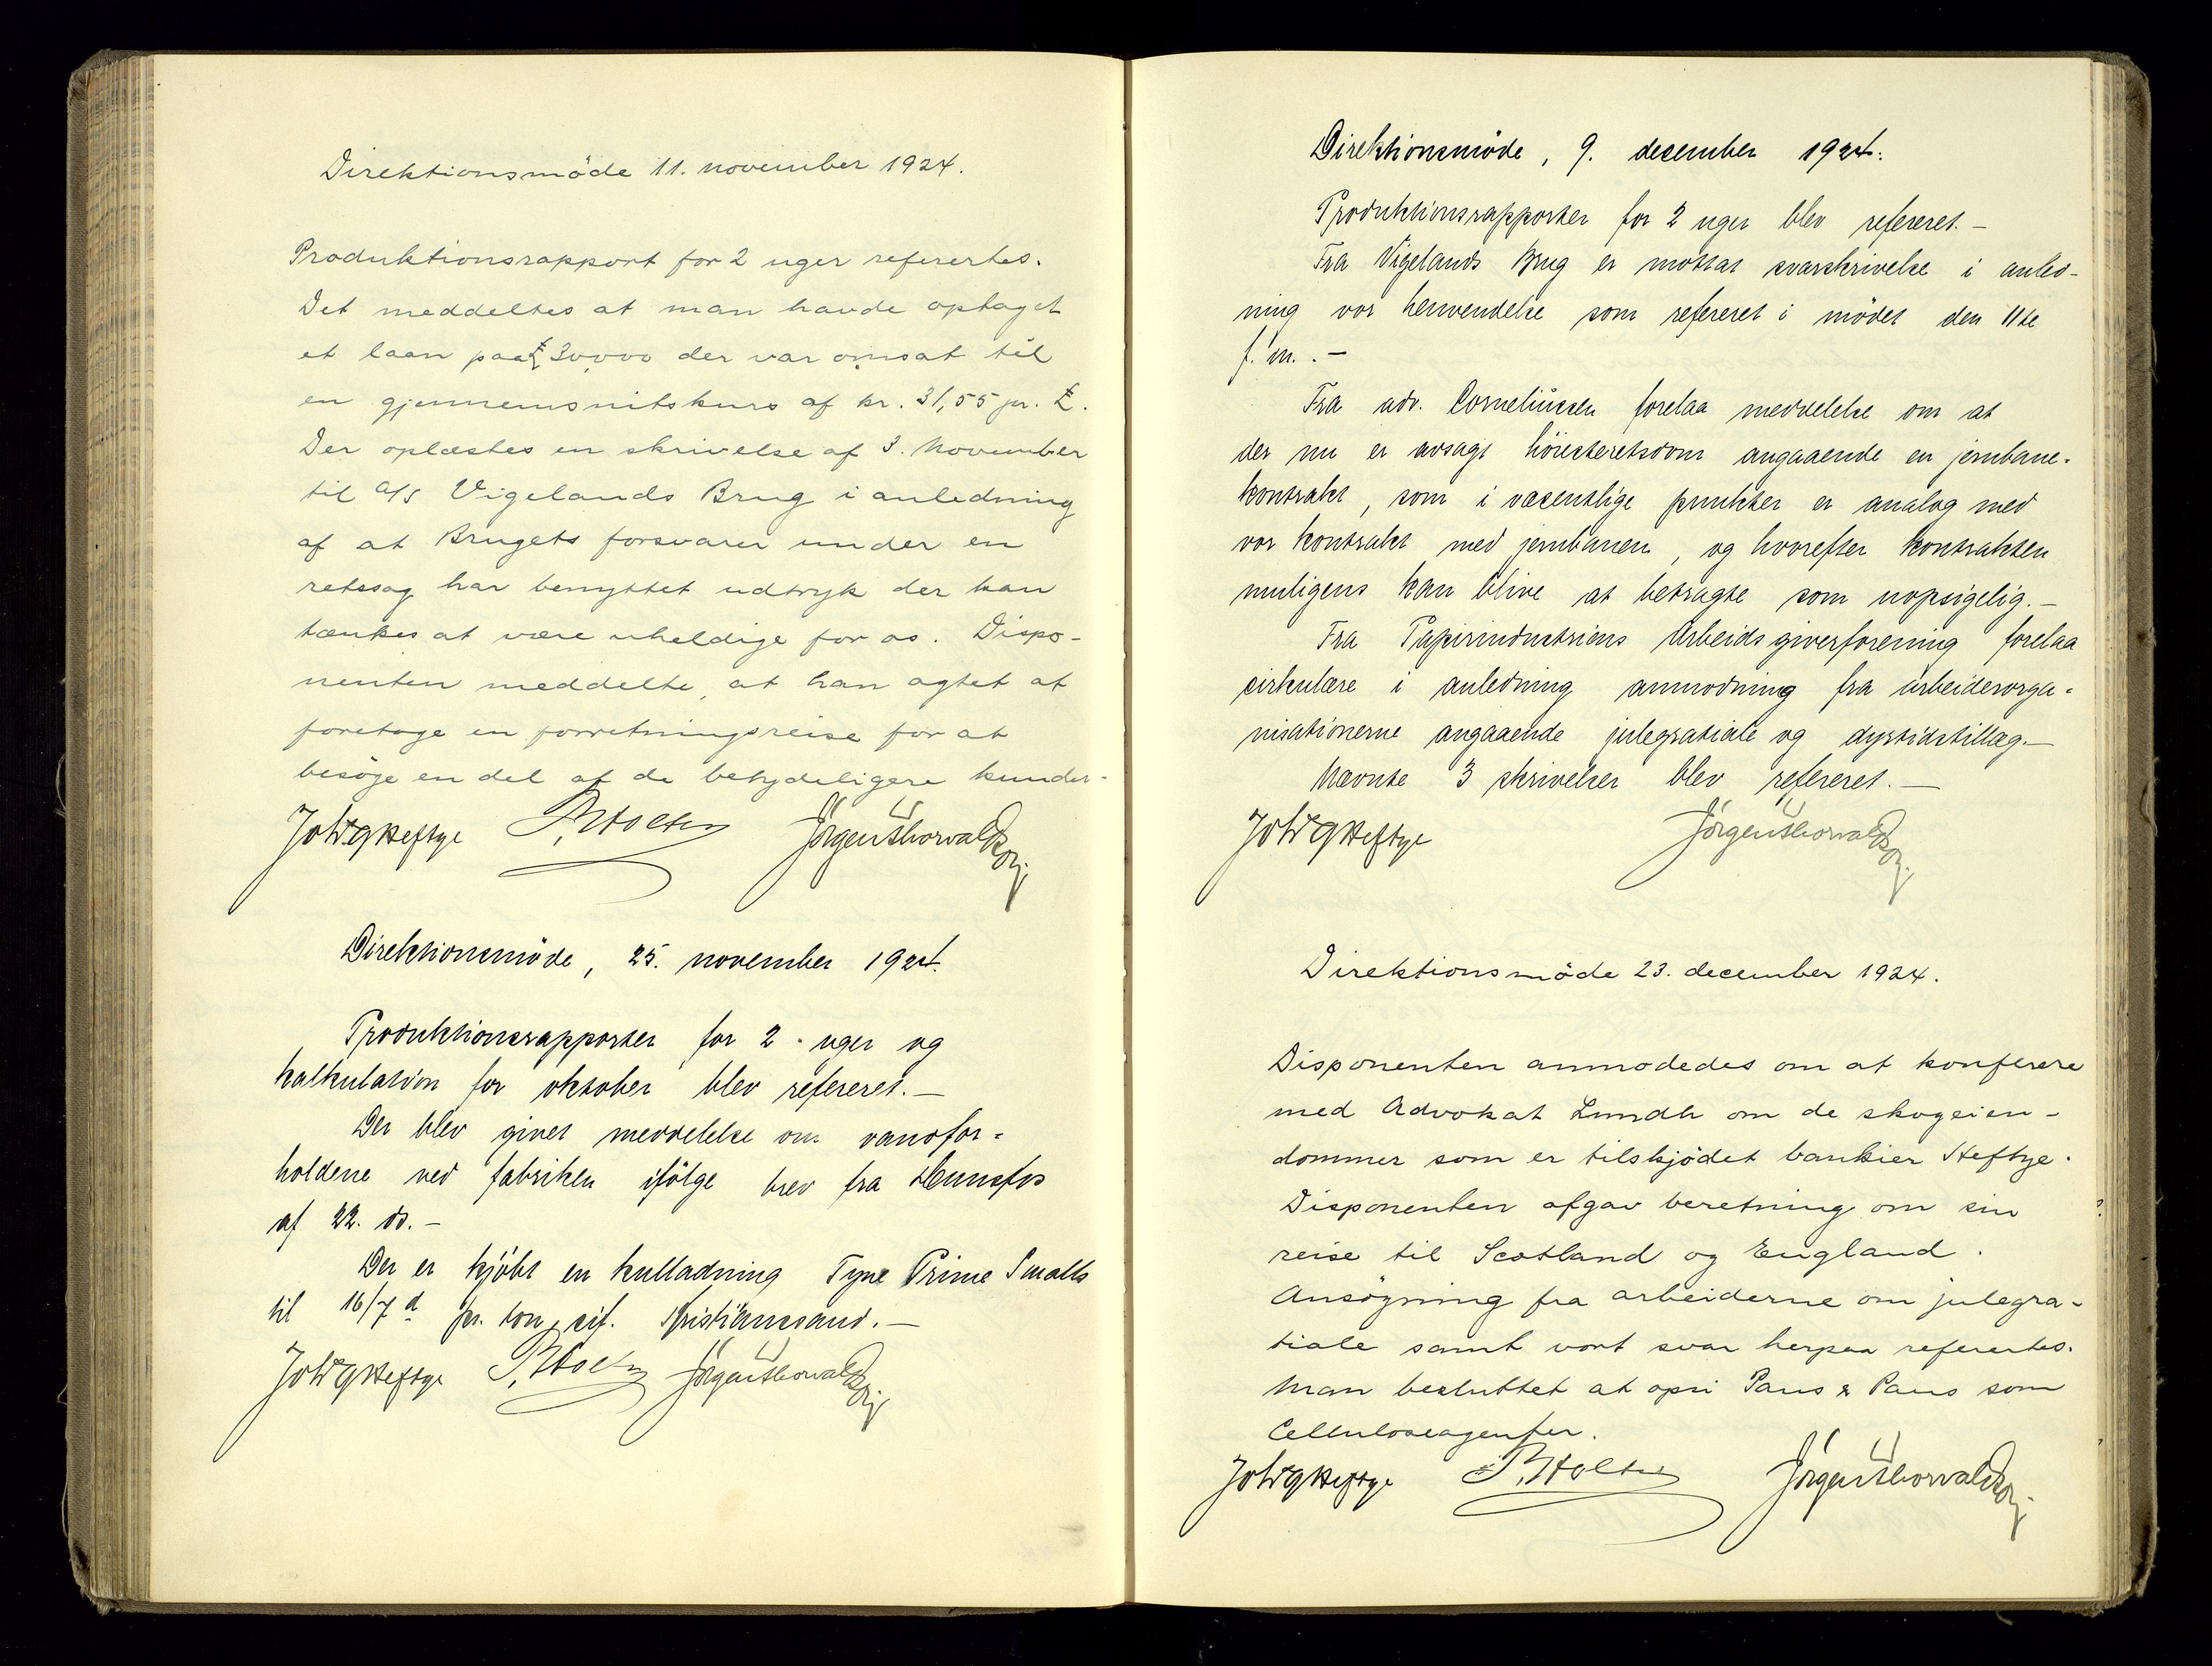 Direktionsmöde 11. november 1924.
Produktionsrapport for 2 uger refertes.
Det meddeltes at man havde optaget
et laan paa £ 30,000 der var omsat til
en gjennemsnitskurs af kr. 31,55 pr. £.
Der oplæstes en skrivelse af 3. November
til A/S Vigelands Brug i anledning
af at Brugets forsvarer under en
retssag har benyttet udtryk der kan
tænkes at være uheldige for os. Dispo-
nenten meddelte, at han agtet at
foretage en forretningsreise for at
besöge en del af de betydeligere kunder.
Joh Heftye P. Holten Jörgen Thorvaldson
Direktionsmöde, 25. november 1924.
Produktionsrapporter for 2 uger og
kalkulation for oktober blev refereret. —
Der blev givet meddelelse om vandfor-
holdene ved fabriken ifölge brev fra Hunsfos
af 22. ds. —
Der er kjöbt en kulladning Tyne Prime Smalls
til 16/7 d pr. ton, cif. Kristianssand. —
Joh Heftye P. Holten Jörgen Thorvaldson
Direktionsmöde, 9. december 1924.
Produktionsrapporter for 2 uger blev refereret. —
Fra Vigelands Brug er mottat svarskrivelse i anled-
ning vor henvendelse som refereret i mödet den 11te
f. m. . —
Fra adv. Corneliussen forelaa meddelelse om at
der nu er avsagt höiesteretsdom angaaende en jernbane-
kontrakt, som i væsentlige punkter er analog med
vor kontrakt med jernbanen, og hvorefter kontrakten
muligens kan blive at betragte som uopsigelig. —
Fra Papirindustriens Arbeidsgiverforening forelaa
cirkulære i anledning anmodning fra arbeiderorga-
nisationerne angaaende julegratiale og dyrtidstillæg. —
Nævnte 3 skrivelser blev refereret. —
Joh Heftye Jörgen Thorvaldson
Direktionsmöde 23. december 1924.
Disponenten anmodedes om at konferere
med Advokat Lundh om de skogeien-
dommer som er tilskjödet bankier Heftye.
Disponenten afgav beretning om sin
reise til Scotland og England.
Ansögning fra arbeiderne om julegra-
tiale samt vort svar herpaa refertes.
Man besluttet at opsi Paus & Paus som
Celluloseagenter.
Joh Heftye P. Holten Jörgen Thorvaldson